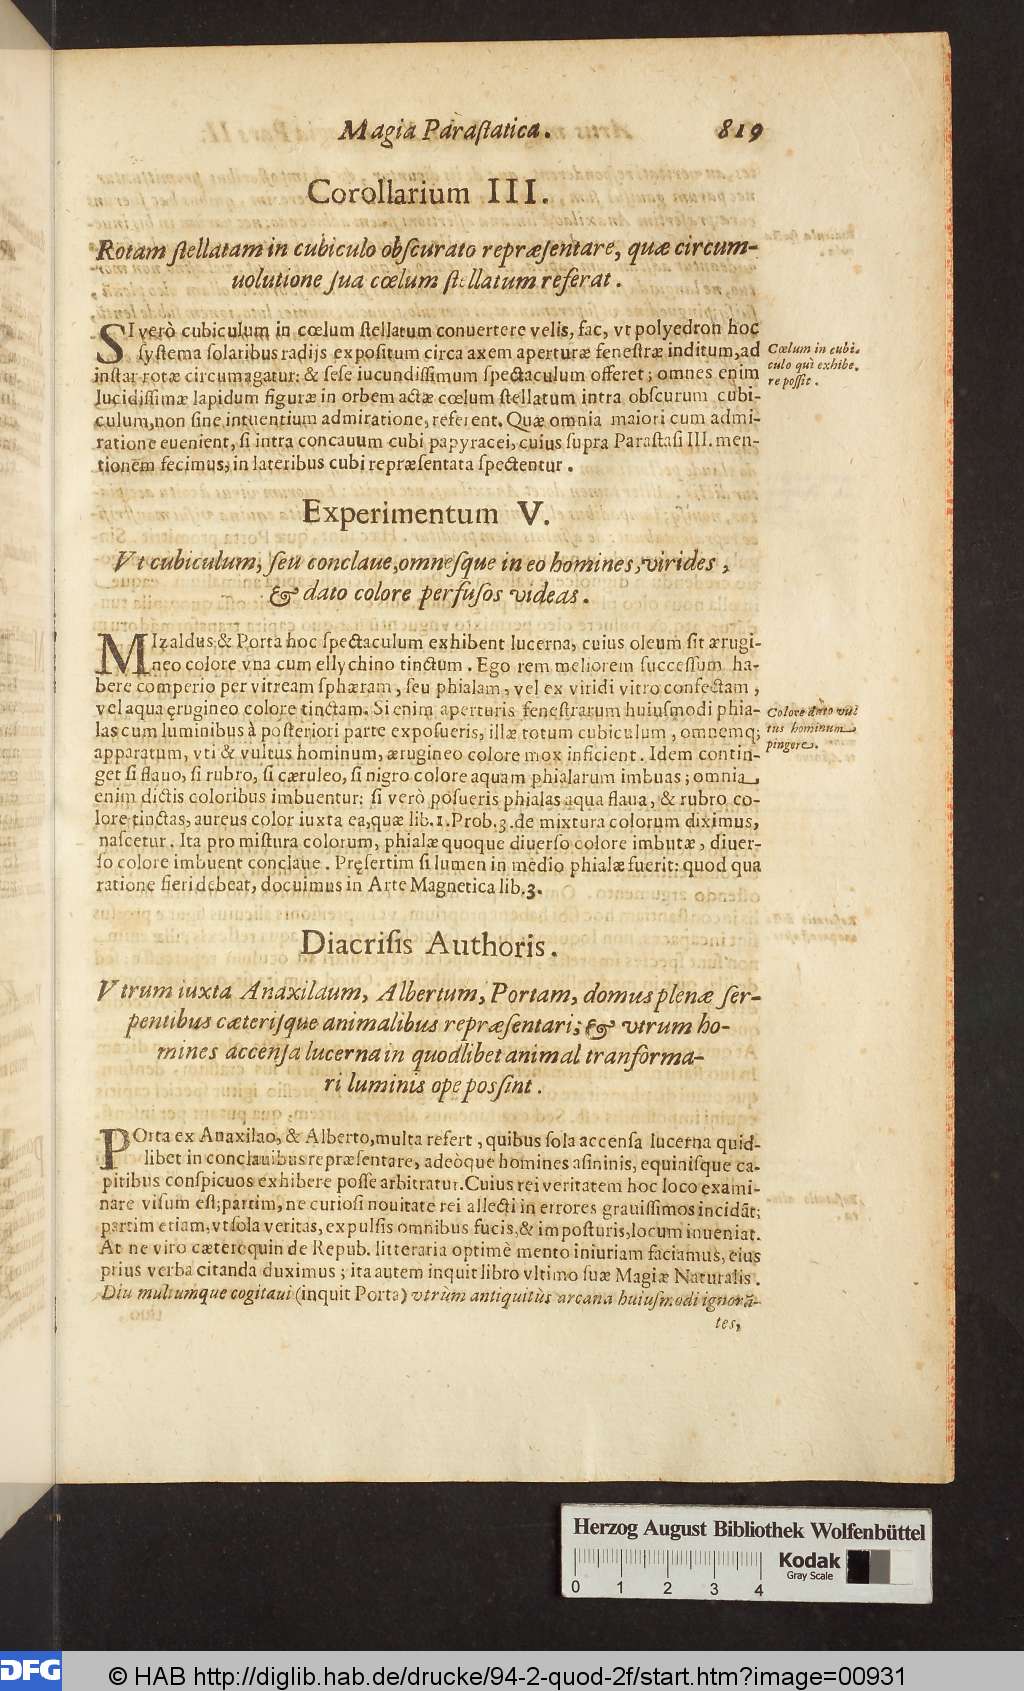 Magia Paraſtatica. 819
Corollarium III.
Rotam ſtellatam in cubiculo obſcurato repræſentare, quæ circum-
uolutione ſua cœlum ſtellatum referat.
SI verò cubiculum in cœlum ſtellatum conuertere velis, fac, vt polyedron hoc
ſyſtema ſolaribus radijs expoſitum circa axem aperturæ feneſtræ inditum, ad
inſtar rotæ circumagatur: & ſeſe iucundiſſimum ſpectaculum offeret; omnes enim
lucidiſſimæ lapidum figuræ in orbem actæ cœlum ſtellatum intra obſcurum cubi-
culum, non ſine intuentium admiratione, referent. Quæ omnia maiori cum admi-
ratione euenient, ſi intra concauum cubi papyracei, cuius ſupra Paraſtaſi III. men-
tionem fecimus, in lateribus cubi repræſentata ſpectentur.
Cœlum in cubi-
culo quì exhibe-
re poſſit.
Experimentum V.
Vt cubiculum, ſeu conclaue, omneſque in eo homines, virides,
& dato colore perfuſos videas.
MIzaldus & Porta hoc ſpectaculum exhibent lucerna, cuius oleum ſit ærugi-
neo colore vna cum ellychino tinctum. Ego rem meliorem ſucceſſum ha-
bere comperio per vitream ſphæram, ſeu phialam, vel ex viridi vitro confectam,
vel aqua ęrugineo colore tinctam. Si enim aperturis feneſtrarum huiuſmodi phia-
las cum luminibus à poſteriori parte expoſueris, illæ totum cubiculum, omnemq;
apparatum, vti & vultus hominum, ærugineo colore mox inficient. Idem contin-
get ſi flauo, ſi rubro, ſi cæruleo, ſi nigro colore aquam phialarum imbuas; omnia
enim dictis coloribus imbuentur: ſi verò poſueris phialas aqua flaua, & rubro co-
lore tinctas, aureus color iuxta ea, quæ lib. 1. Prob. 3. de mixtura colorum diximus,
naſcetur. Ita pro miſtura colorum, phialæ quoque diuerſo colore imbutæ, diuer-
ſo colore imbuent conclaue. Pręſertim ſi lumen in medio phialæ fuerit: quod qua
ratione fieri debeat, docuimus in Arte Magnetica lib. 3.
Colore dato vul
tus hominum
pingere.
Diacriſis Authoris.
Vtrum iuxta Anaxilaum, Albertum, Portam, domus plenæ ſer-
pentibus cæteriſque animalibus repræſentari; & vtrum ho-
mines accenſa lucerna in quodlibet animal tranſforma-
ri luminis ope poſſint.
POrta ex Anaxilao, & Alberto, multa refert, quibus ſola accenſa lucerna quid-
libet in conclauibus repræſentare, adeòque homines aſininis, equiniſque ca-
pitibus conſpicuos exhibere poſſe arbitratur. Cuius rei veritatem hoc loco exami-
nare viſum eſt; partim, ne curioſi nouitate rei allecti in errores grauiſſimos incidāt;
partim etiam, vt ſola veritas, expulſis omnibus fucis, & impoſturis, locum inueniat.
At ne viro cæteroquin de Repub. litteraria optimè merito iniuriam faciamus, eius
prius verba citanda duximus; ita autem inquit libro vltimo ſuæ Magiæ Naturalis.
Diu multumque cogitaui (inquit Porta) vtrùm antiquitùs arcana huiuſmodi ignorā-
tes,
Herzog August Bibliothek Wolfenbüttel
0 1 2 3 4
Kodak
Gray Scale
DFG © HAB http://diglib.hab.de/drucke/94-2-quod-2f/start.htm?image=00931